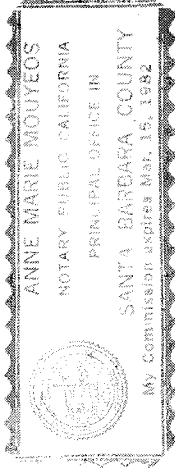 ANNE MARIE MOUYEOS
NOTARY PUBLIC CALIFORNIA
PRINCIPAL OFFICE IN
SANTA BARBARA COUNTY
My Commission expires Mar. 15, 1982